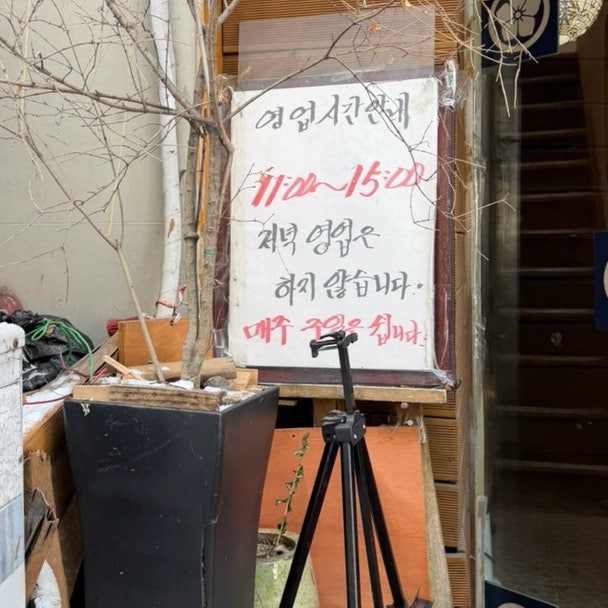 영업시간안내
11:00~15:00
저녁 영업은
하지 않습니다.
매주 주일은 쉽니다.